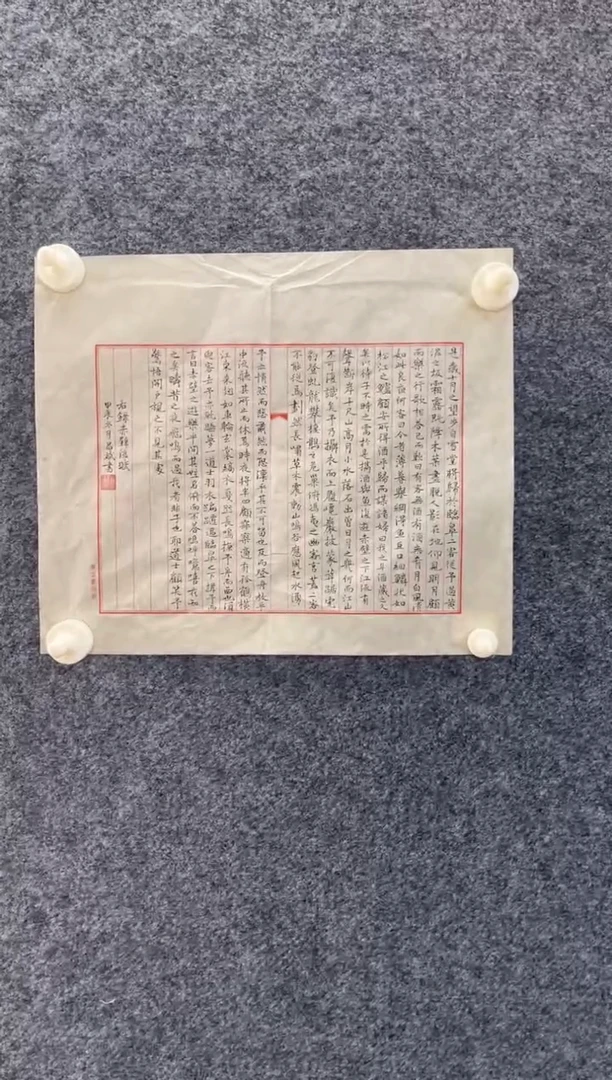 是歲十月之望步自雪堂將歸於臨皋二客從予過黃
泥之坂霜露既降木葉盡脫人影在地仰見明月顧
而樂之行歌相答已而歎曰有客無酒有酒無肴月白風清
如此良夜何客曰今者薄暮舉網得魚巨口細鱗狀如
松江之鱸顧安所得酒乎歸而謀諸婦曰我有斗酒藏之久
矣以待子不時之需於是攜酒與魚復遊赤壁之下江流有
聲斷岸千尺山高月小水落石出曾日月之幾何而江山
不可復識矣予乃攝衣而上履巉巖披蒙茸踞虎
豹登虬龍攀棲鶻之危巢俯馮夷之幽宮蓋二客
不能從焉劃然長嘯草木震動山鳴谷應風起水湧
予亦悄然而悲肅然而恐凜乎其不可留也反而登舟放乎
中流聽其所止而休焉時夜將半四顧寂寥適有孤鶴橫
江東來翅如車輪玄裳縞衣戛然長鳴掠予舟而西也須
臾客去予亦就睡夢一道士羽衣蹁躚過臨皋之下揖予而
言曰赤壁之遊樂乎問其姓名俯而不答嗚呼噫嘻我知
之矣疇昔之夜飛鳴而過我者非子也耶道士顧笑予
驚悟開戶視之不見其處
右錄蘇軾後賦
甲辰冬月昌斌書